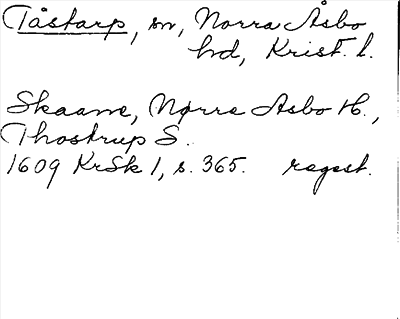 Tåstarp, sn, Norra Åsbo
hd, Krist. l.
Skaane, Nørre Asbo H.,
Thostrup S.
1609 KrSk 1, s. 365. regest.